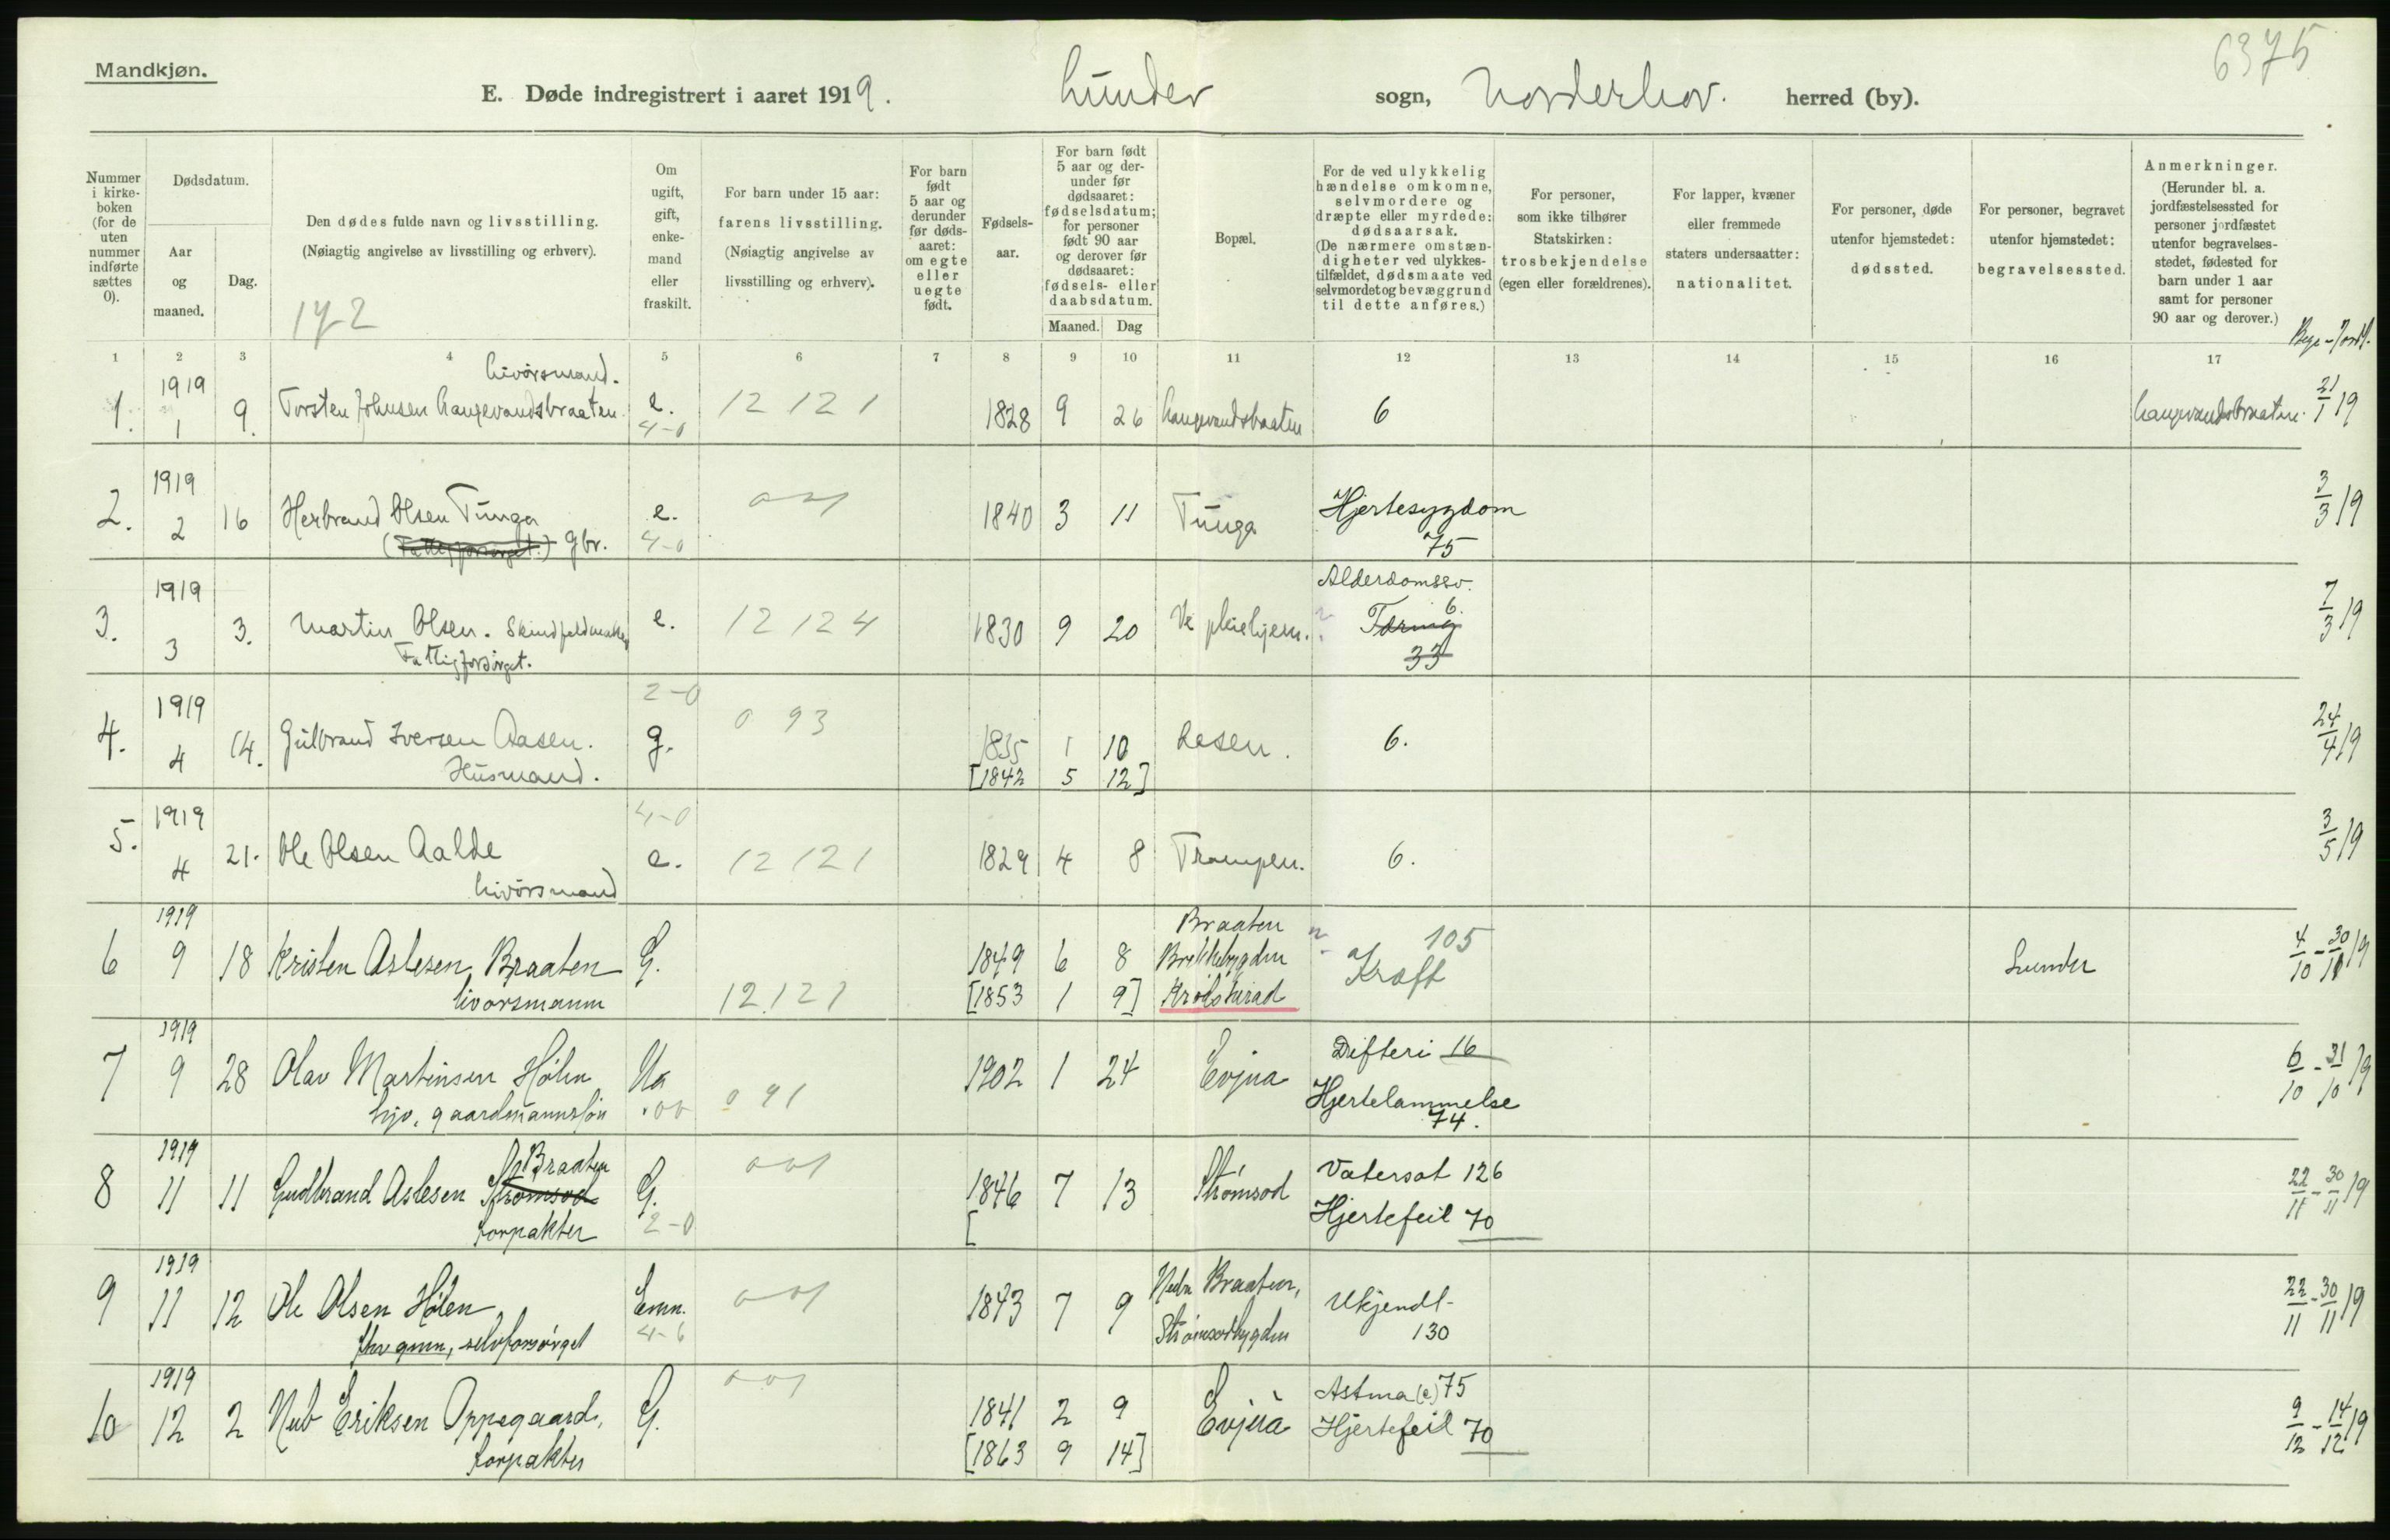 6375
Mandkjøn.
E. Døde indregistrert i aaret 1919. Lunder sogn, Norderhov. herred (by).
Nummer i kirkeboken (for de uten nummer indførte sættes 0).
Dødsdatum.
Aar og maaned.
Dag.
Den dødes fulde navn og livsstilling.
(Nøiagtig angivelse av livsstilling og erhverv).
172
Om ugift, gift, enkemand eller fraskilt.
For barn under 15 aar: farens livsstilling.
(Nøiagtig angivelse av livsstilling og erhverv).
For barn født 5 aar og derunder før dødsaaret: om egte eller uegte født.
Fødselsaar.
For barn født 5 aar og derunder før dødsaaret: fødselsdatum; for personer født 90 aar og derover før dødsaaret: fødsels- eller daabsdatum.
Maaned. Dag
Bopæl.
For de ved ulykkelig hændelse omkomne, selvmordere og dræpte eller myrdede: dødsaarsak.
(De nærmere omstændigheter ved ulykkestilfældet, dødsmaate ved selvmordet og bevæggrund til dette anføres.)
For personer, som ikke tilhører Statskirken: trosbekjendelse (egen eller forældrenes).
For lapper, kvæner eller fremmede staters undersaatter: nationalitet.
For personer, døde utenfor hjemstedet: dødssted.
For personer, begravet utenfor hjemstedet: begravelsessted.
Anmerkninger.
(Herunder bl. a. jordfæstelsessted for personer jordfæstet utenfor begravelsesstedet, fødested for barn under 1 aar samt for personer 90 aar og derover.)
1 2 3 4 5 6 7 8 9 10 11 12 13 14 15 16 17
Livörsmand.
1. 1919 1 9. Torsten Johnsen Langevandsbraaten e. 4-0 12 121 1828 9 26 Langevandsbraaten 6 Langevandsbraaten. 21/1 19
2. 1919 2 16 Herbrand Olsen Tunga e. 001 1840 3 11 Tunga Hjertesygdom 3/3 19
(Fattigforsørget.) Gbr. 4-0 75
3. 1919 3 3. Martin Olsen. e. 12 124 1830 9 20 Ve pleiehjem. Alderdomssv. 6. Tæring 33 7/3 19
Fattigforsörget.
4. 1919 4 14. Gulbrand Iversen Aasen. 2-0 g. 0 93 1835 1 10 Aasen. 6. 24/4 19
Husmand. [1842 5 12]
5. 1919 4 21. Ole Olsen Aalde 4-0 e. 12 121 1829 4 8 Trampen. 6. 3/5 19
Livörsmand
6 1919 9 18 Kristen Aslesen Braaten G. 1849 6 8 Braaten Brekkebygden 105 Kræft Lunder 4/10 - 30/10 19
livørsmann 12 121 [1853 1 9] Krødsherad
7 1919 9 28 Olav Martinsen Hólen Ug. 1902 1 24 Evjua Difteri 16 6/10 - 31/10 19
hjv. gaardmannssøn 00 0 91 Hjertelammelse 74.
8 1919 11 11 Gudbrand Aslesen Strømsod Braaten G. 001 1846 7 13 Strømsod Vatersot 126 22/11 - 30/11 19
forpakter 2-0 [ Hjertefeil 70
9 1919 11 12 Ole Olsen Hólen Enm. 001 1843 7 9 Nedre Braaten, Ukjendt 22/11 - 30/11 19
selvforsørget 4-6 Strømsodbygden 130
10 1919 12 2 Nub Eriksen Oppegaard, G. 001 1841 2 9 Evjua Astma (e) 75 9/12 - 14/12 19
forpakter [1863 9 14] Hjertefeil 70